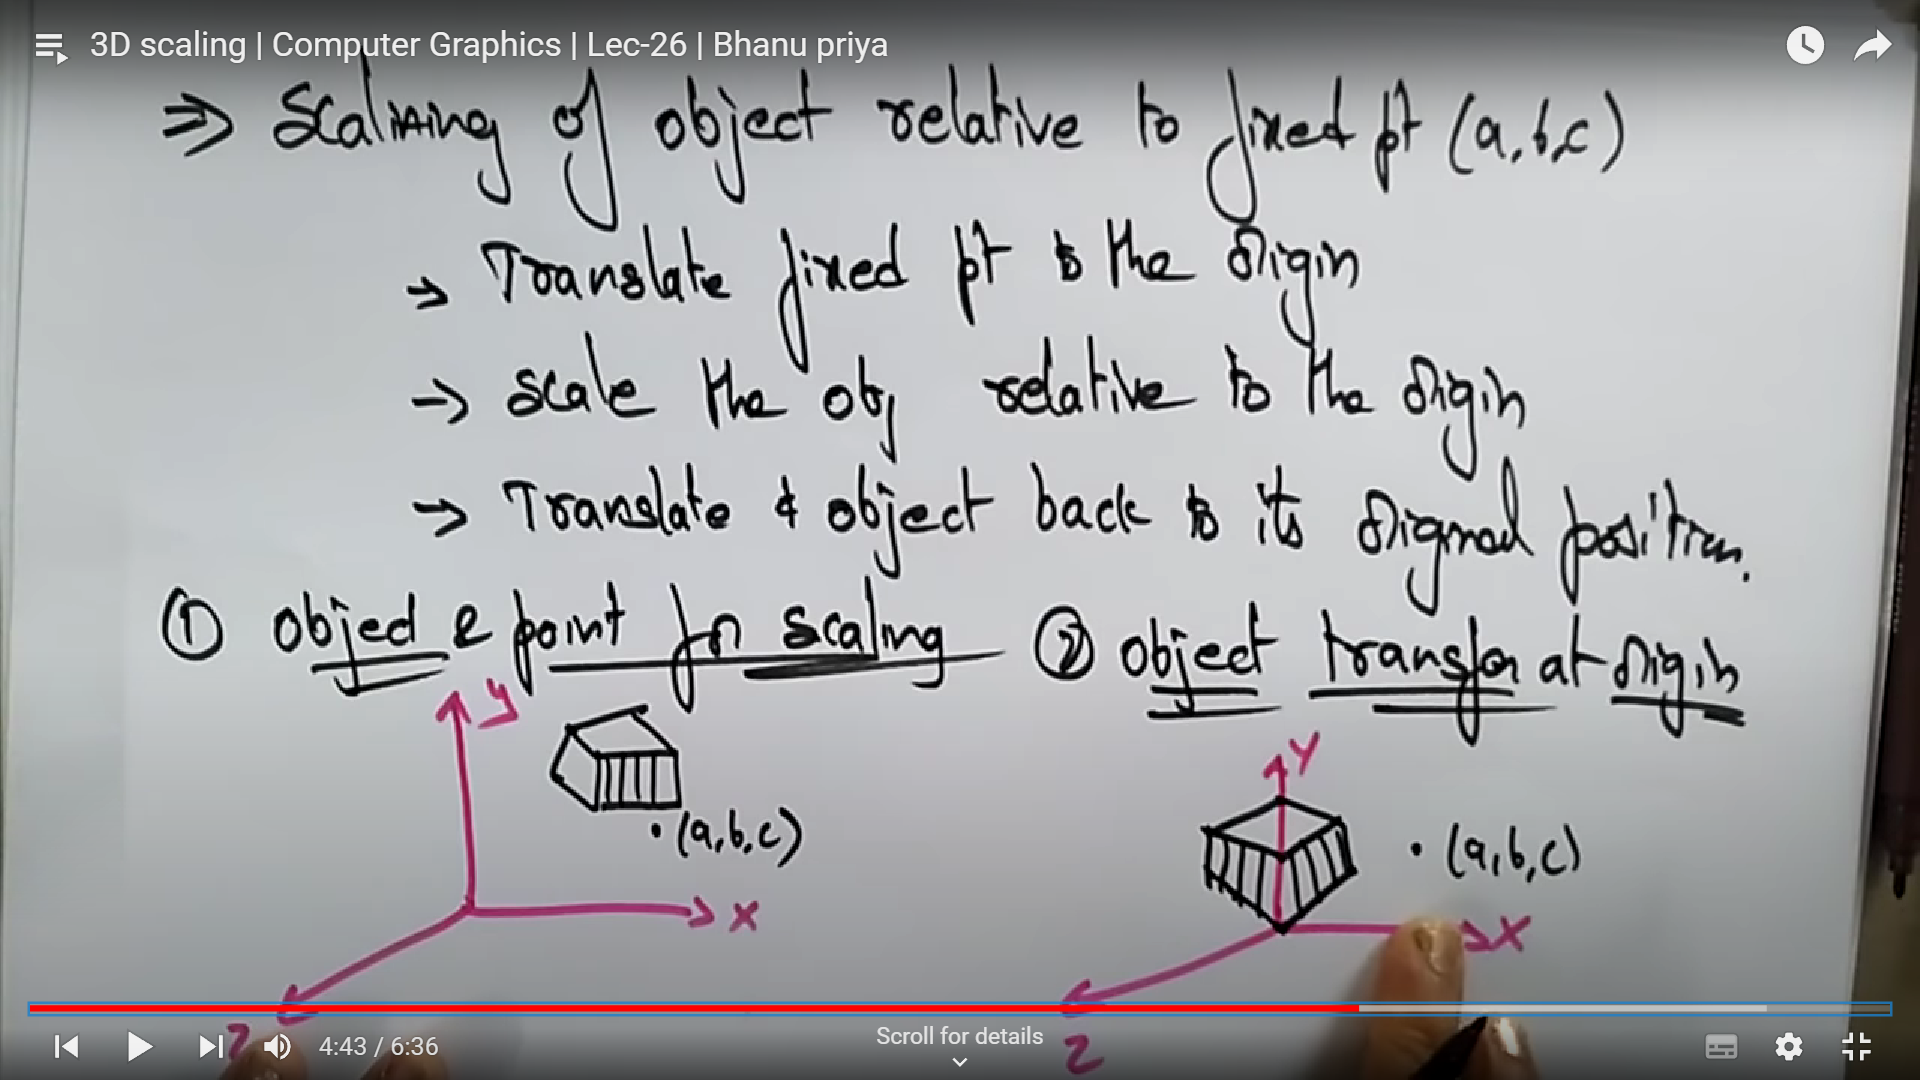 3D scaling | Computer Graphics | Lec-26 | Bhanu priya
⇒ Scalining of object relative to fixed pt (a,b,c)
→ Translate fixed pt to the origin
→ scale the obj relative to the origin
→ Translate & object back to its original position.
① object & point for scaling
② object transfer at origin
y
• (a,b,c)
x
z
Y
• (a,b,c)
X
z
4:43 / 6:36
Scroll for details